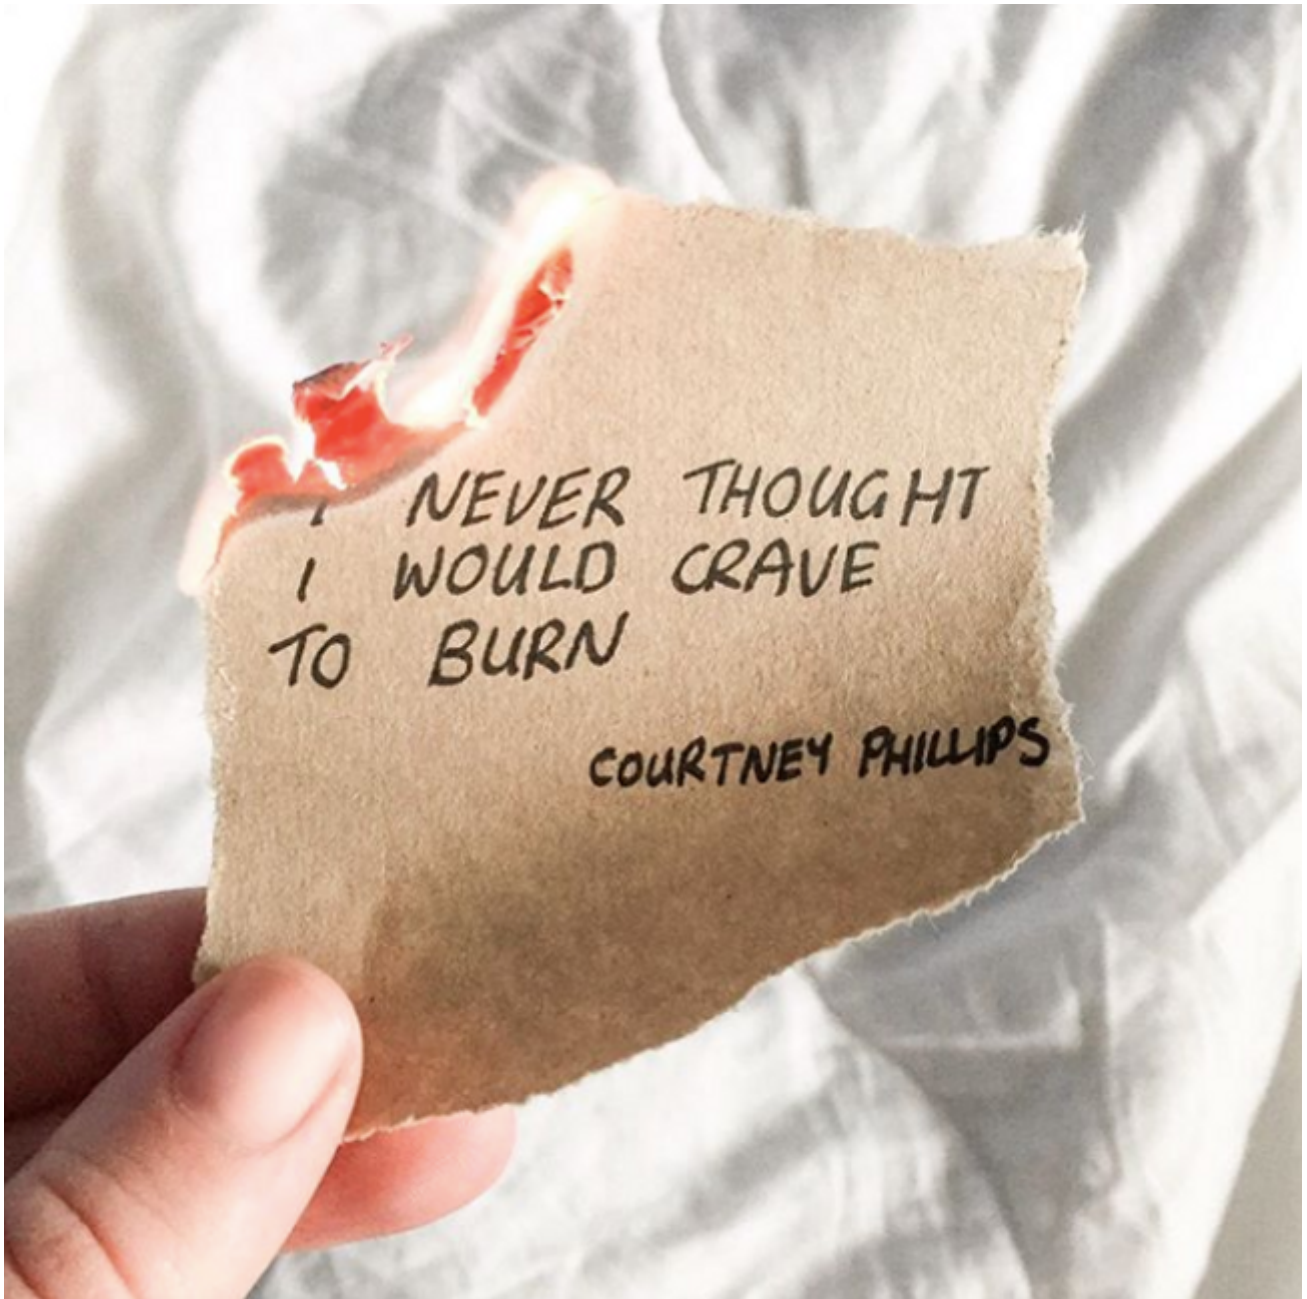 I NEVER THOUGHT
I WOULD CRAVE
TO BURN
COURTNEY PHILLIPS